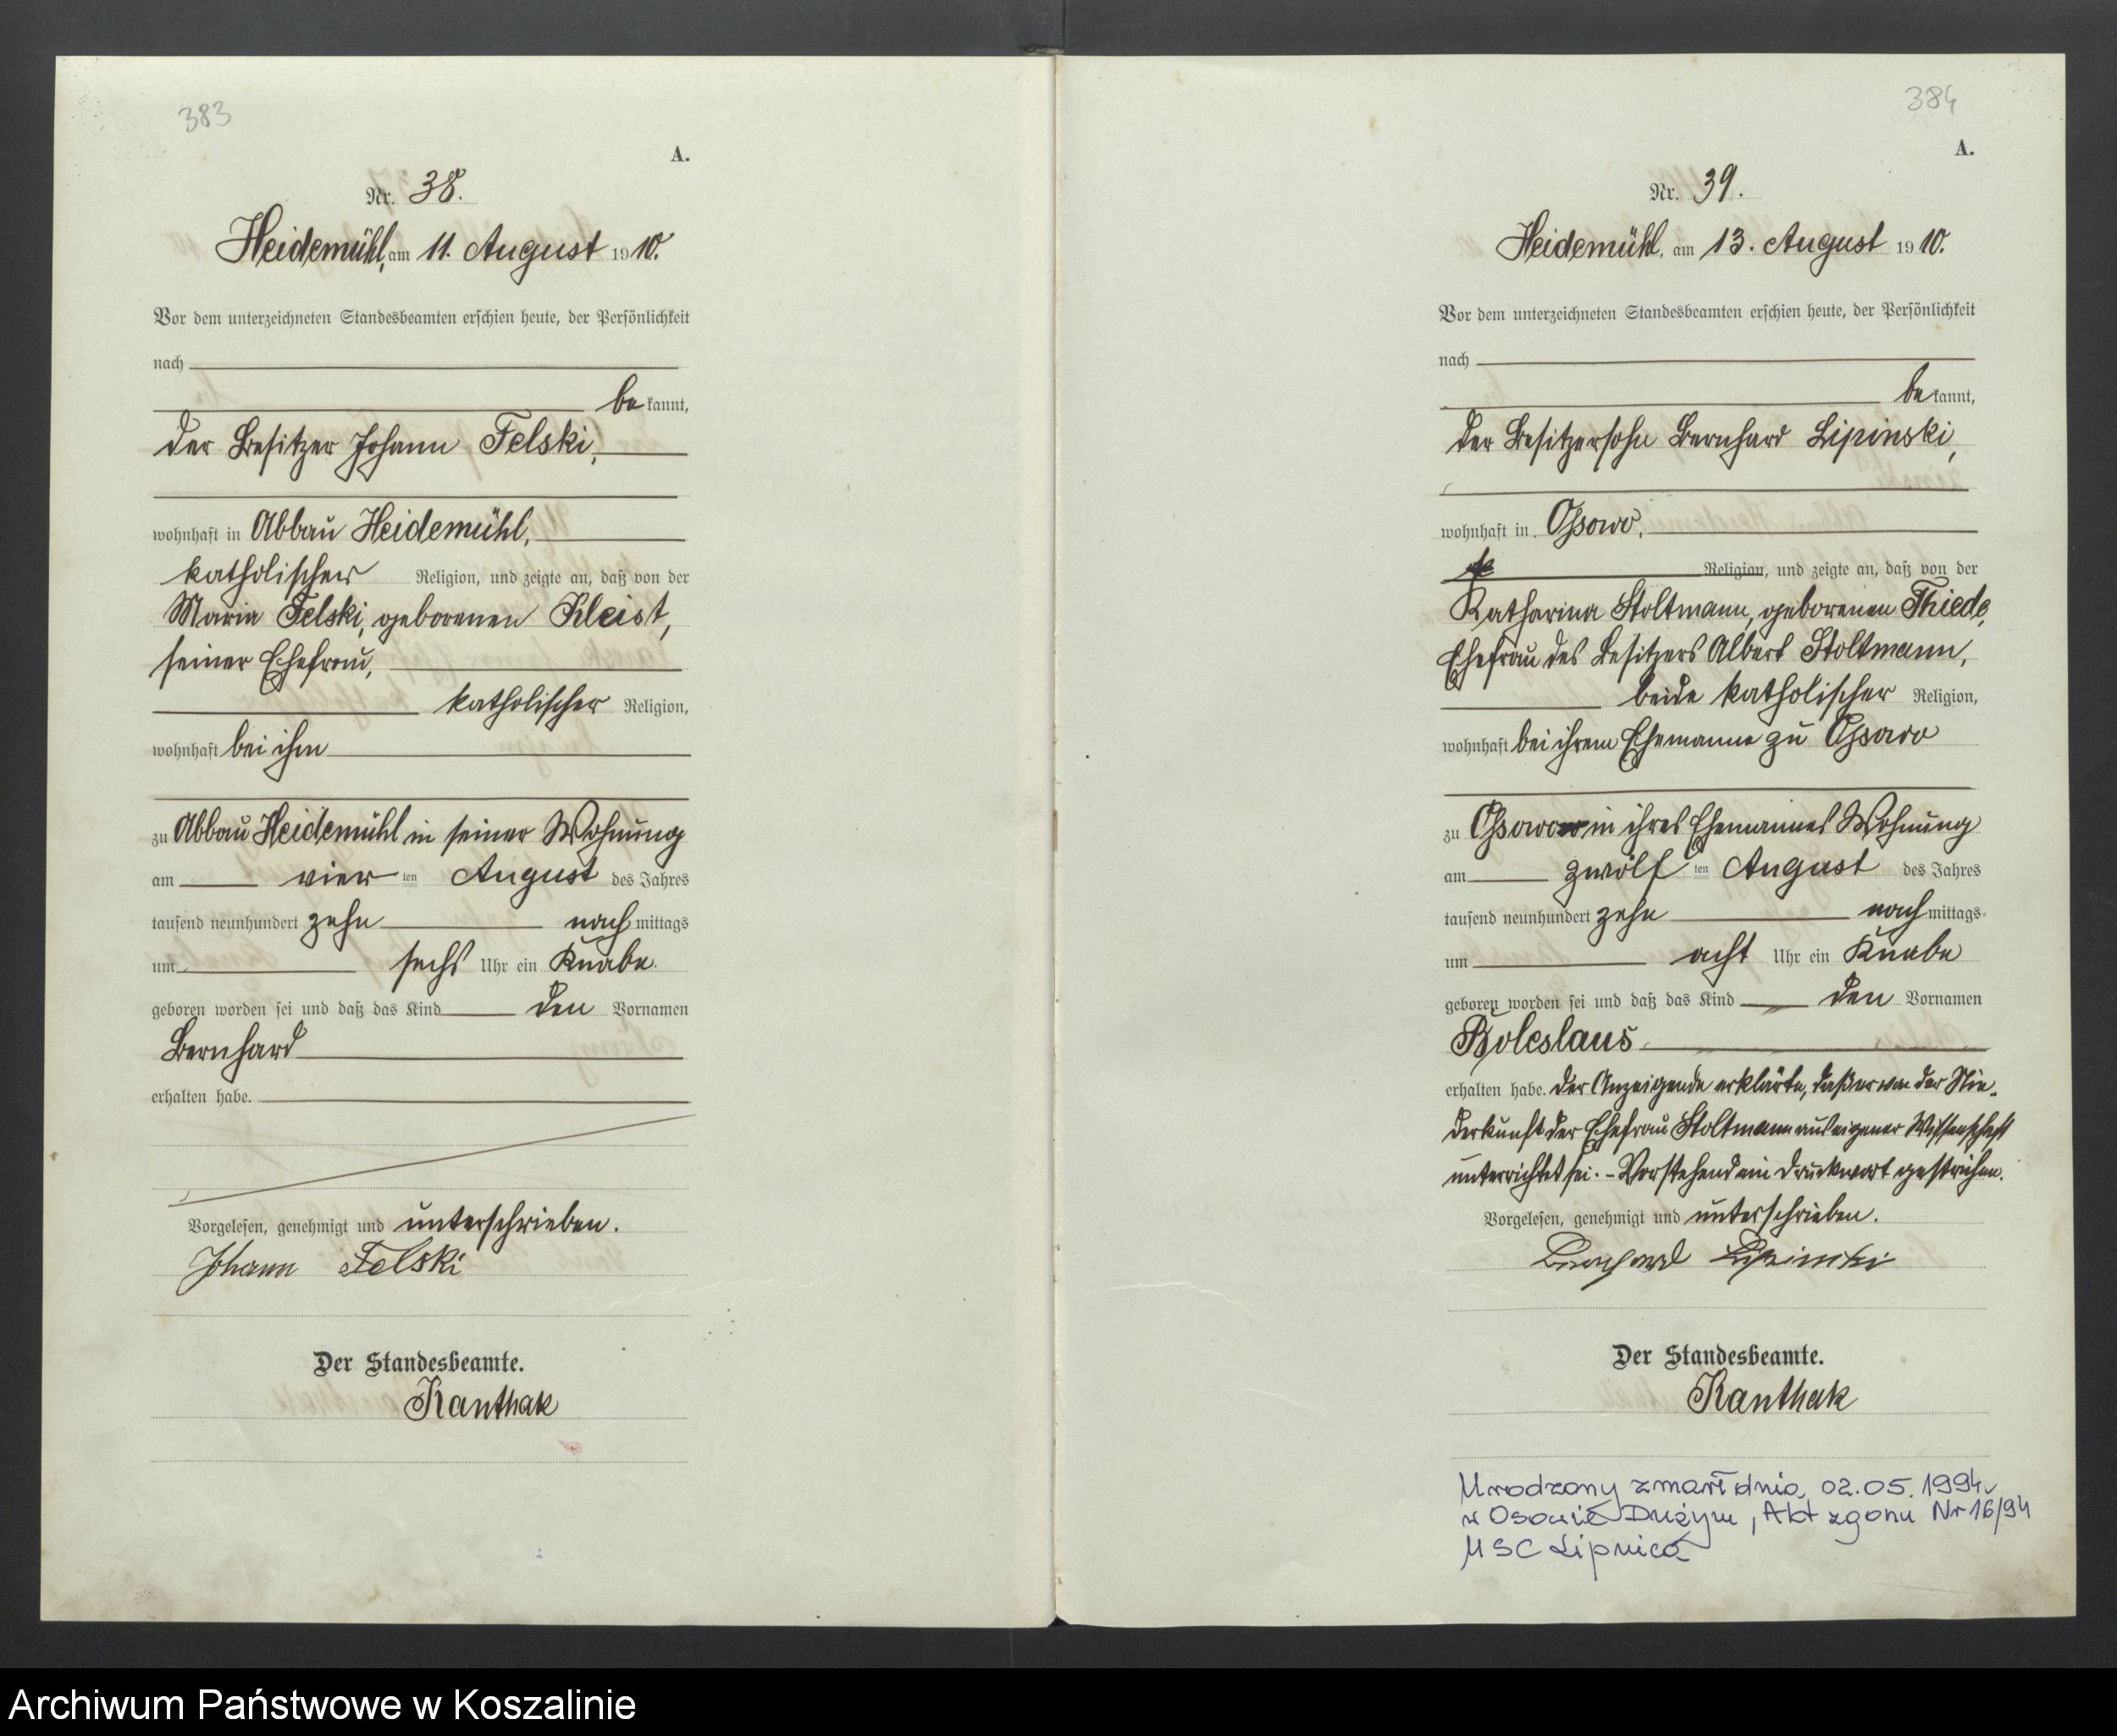 383
A.
Nr. 38.
Heidemühl, am 11. August 1910.
Vor dem unterzeichneten Standesbeamten erschien heute, der Persönlichkeit
nach
bekannt,
der Besitzer Johann Felski,
wohnhaft in Abbau Heidemühl,
katholischer Religion, und zeigte an, daß von der
Maria Felski, geborenen Kleist,
seiner Ehefrau,
katholischer Religion,
wohnhaft bei ihm
zu Abbau Heidemühl in seiner Wohnung
am vierten August des Jahres
tausend neunhundert zehn nachmittags
um sechs Uhr ein Knabe
geboren worden sei und daß das Kind den Vornamen
Bernhard
erhalten habe.
Vorgelesen, genehmigt und unterschrieben.
Johann Felski
Der Standesbeamte.
Kanthak
384
A.
Nr. 39.
Heidemühl, am 13. August 1910.
Vor dem unterzeichneten Standesbeamten erschien heute, der Persönlichkeit
nach
bekannt,
der Besitzersohn Bernhard Lipinski,
wohnhaft in Ossowo,
Religion, und zeigte an, daß von der
Katharina Stoltmann, geborenen Thiede,
Ehefrau des Besitzers Albert Stoltmann,
beide katholischer Religion,
wohnhaft bei ihrem Ehemanne zu Ossowo
zu Ossowo in ihres Ehemannes Wohnung
am zwölften August des Jahres
tausend neunhundert zehn nachmittags
um acht Uhr ein Knabe
geboren worden sei und daß das Kind den Vornamen
Boleslaus
erhalten habe. Der Anzeigende erklärte, daß er von der Nie-
derkunft der Ehefrau Stoltmann aus eigener Wissenschaft
unterrichtet sei. - Vorstehend ein Druckwort gestrichen.
Vorgelesen, genehmigt und unterschrieben.
Bernhard Lipinski
Der Standesbeamte.
Kanthak
Urodzony zmarł dnia 02.05.1994r
w Osowie Dużym, Akt zgonu Nr 16/94
USC Lipnica
Archiwum Państwowe w Koszalinie